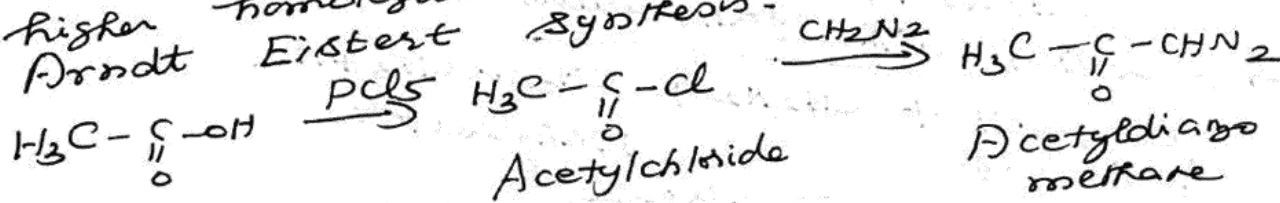 higher
Arndt Eistert synthesis-
H3C-C-OH PCl5 H3C-C-Cl CH2N2 H3C-C-CHN2
O O O
Acetylchloride Acetyldiazo
methane